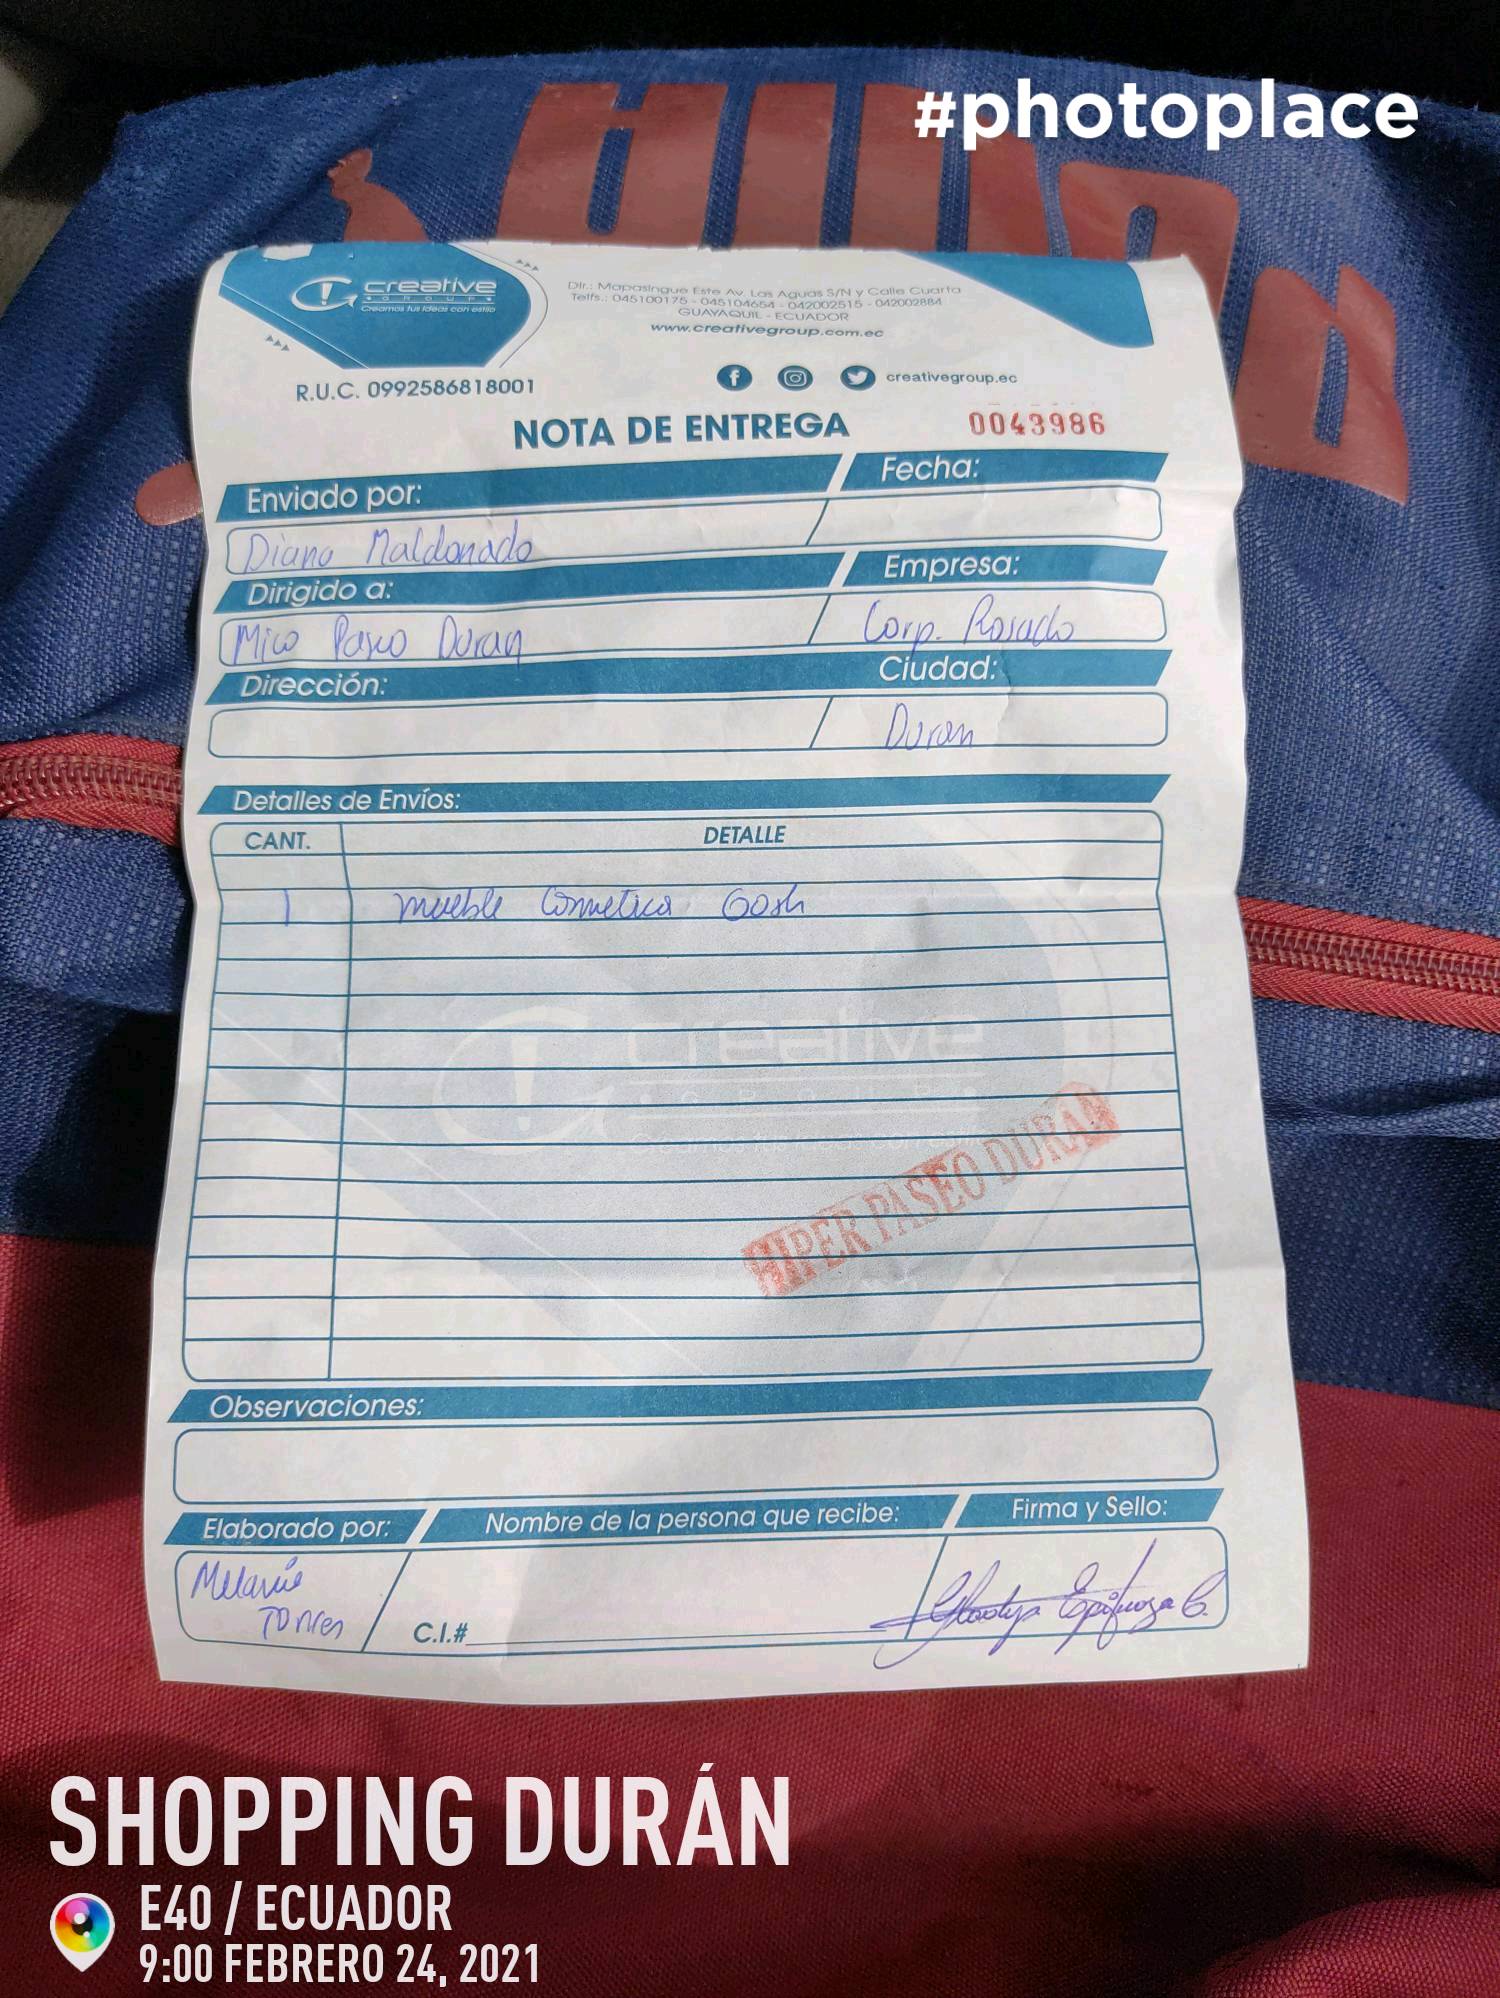 #photoplace
creative
GROUP
Creamos tus ideas con estilo
Dir.: Mapasingue Este Av. Las Aguas S/N y Calle Cuarta
Telfs.: 045100175 - 045104654 - 042002515 - 042002884
GUAYAQUIL - ECUADOR
www.creativegroup.com.ec
R.U.C. 0992586818001
creativegroup.ec
NOTA DE ENTREGA 0043986
Enviado por: Fecha:
Diana Maldonado
Dirigido a: Empresa:
Mico Paseo Duran Corp. Rosado
Dirección: Ciudad:
Duran
Detalles de Envíos:
CANT. DETALLE
1 mueble Cosmetica Gosh
creative
GROUP
HIPER PASEO DURAN
Observaciones:
Elaborado por: Nombre de la persona que recibe: Firma y Sello:
Melanie
Torres
C.I.# Gladys Espinoza C.
SHOPPING DURÁN
E40 / ECUADOR
9:00 FEBRERO 24, 2021